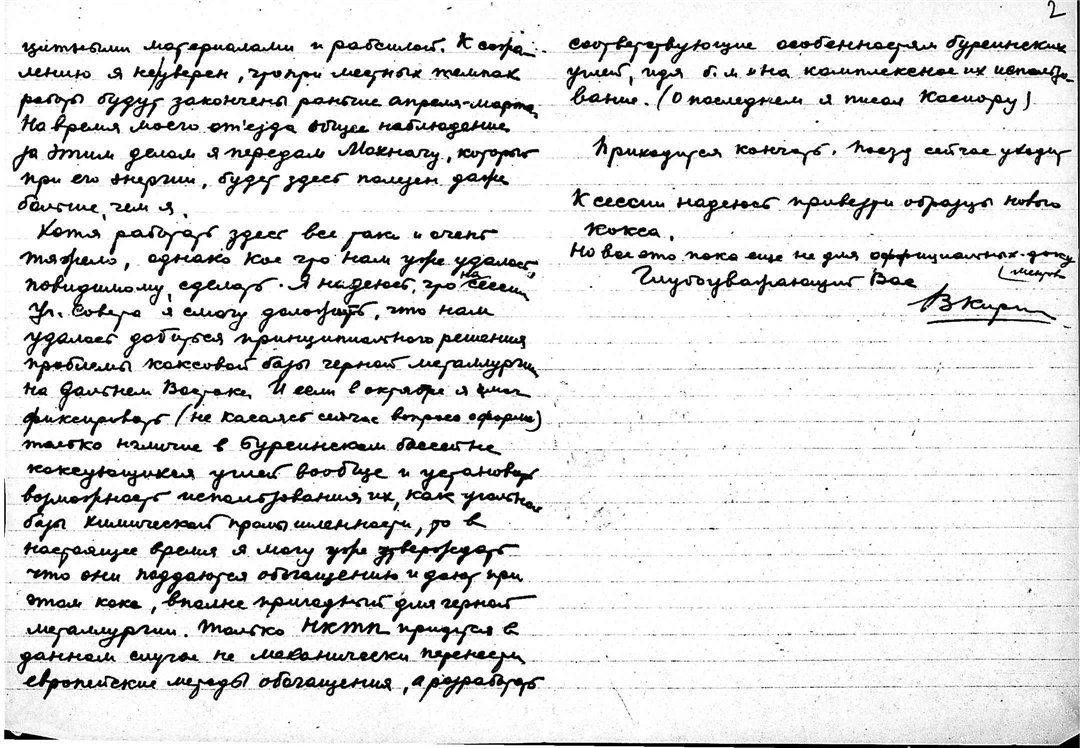 2
цитными материалами и рабсилой. К сожа-
лению я не уверен, что при местных темпах
работы будут закончены раньше апреля-марта
На время моего отъезда общее наблюдение
за этим делом я передам Махначу, который
при его энергии, будет здесь полезен даже
больше, чем я.
Хотя работать здесь все таки и очень
тяжело, однако кое что нам уже удалось,
повидимому, сделать. Я надеюсь, что на сессии
Уч. Совета я смогу доложить, что нам
удалось добиться принципиального решения
проблемы коксовой базы черной металлургии
на Дальнем Востоке. И если в октябре я мог
фиксировать (не касаясь сейчас вопроса о форме)
только наличие в Буреинском бассейне
коксующихся углей вообще и установить
возможность использования их, как угольной
базы химической промышленности, то в
настоящее время я могу уже утверждать
что они поддаются обогащению и дают при
этом кокс, вполне пригодный для черной
металлургии. Только НКТП придется в
данном случае не механически перенести
европейские методы обогащения, а разработать
соответствующие особенностям буреинских
углей, идя б. м. и на комплексное их использо-
вание. (О последнем я писал Косиору)
Приходится кончать. Поезд сейчас уходит
К сессии надеюсь привезти образцы нового
кокса.
Но все это пока еще не для официальных доку
ментов
Глубоуважающий Вас